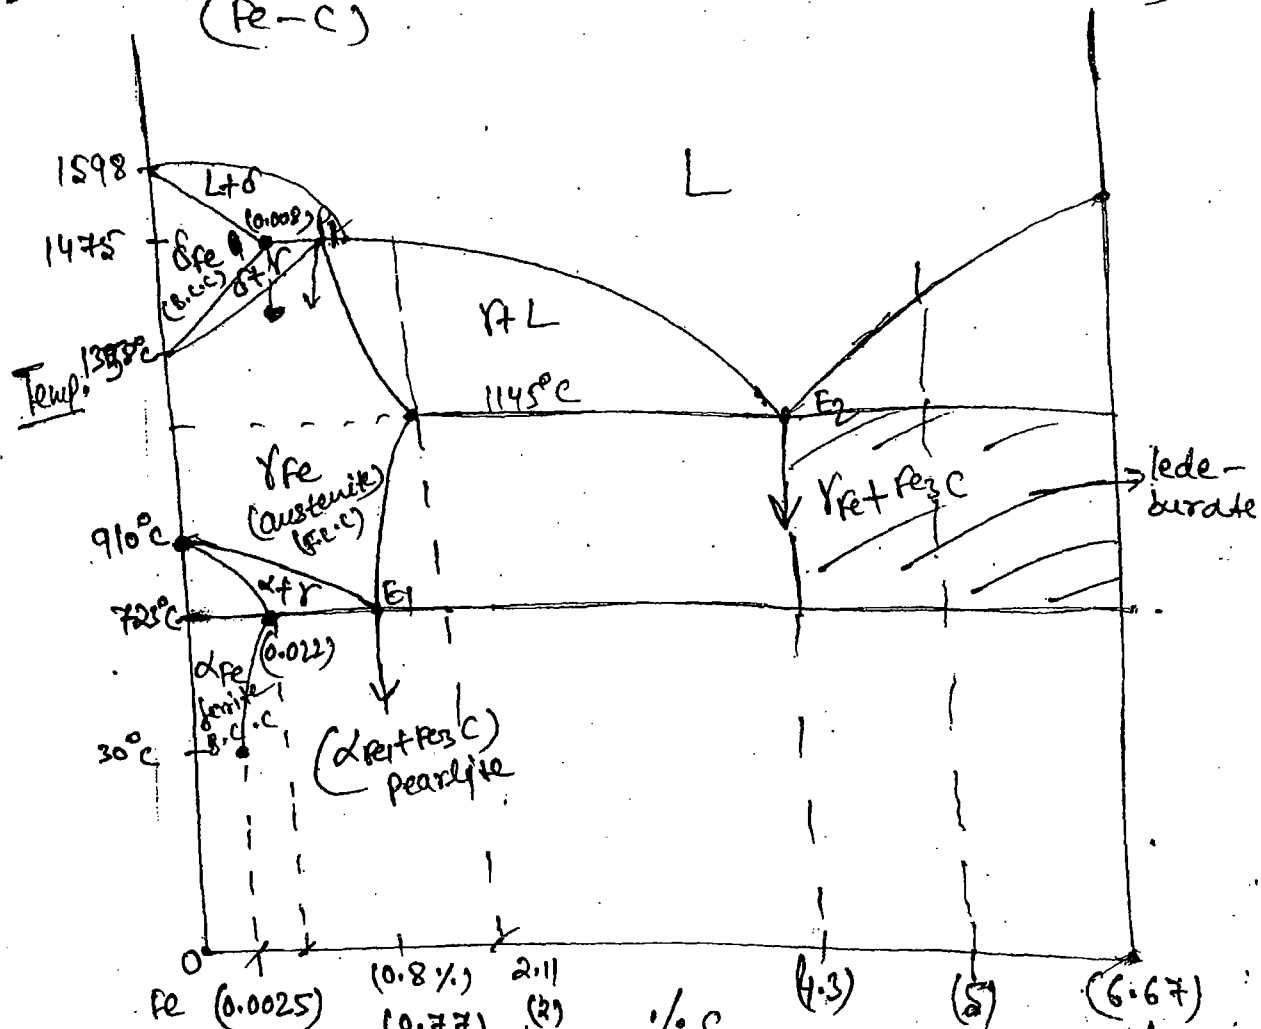 (Fe-C)
1598
L+δ
L
(0.008)
P1
1475
δFe
δ+γ
(B.C.C)
γ+L
Temp.
1145°C
E2
γFe
(austenite)
(F.C.C)
γFe + Fe3C
lede-
burate
910°C
α+γ
E1
723°C
(0.022)
αFe
ferrite
B.C.C
30°C
(αFe+Fe3C)
pearlite
0
Fe
(0.0025)
(0.8%)
(0.77)
2.11
(2)
% C
(4.3)
(5)
(6.67)